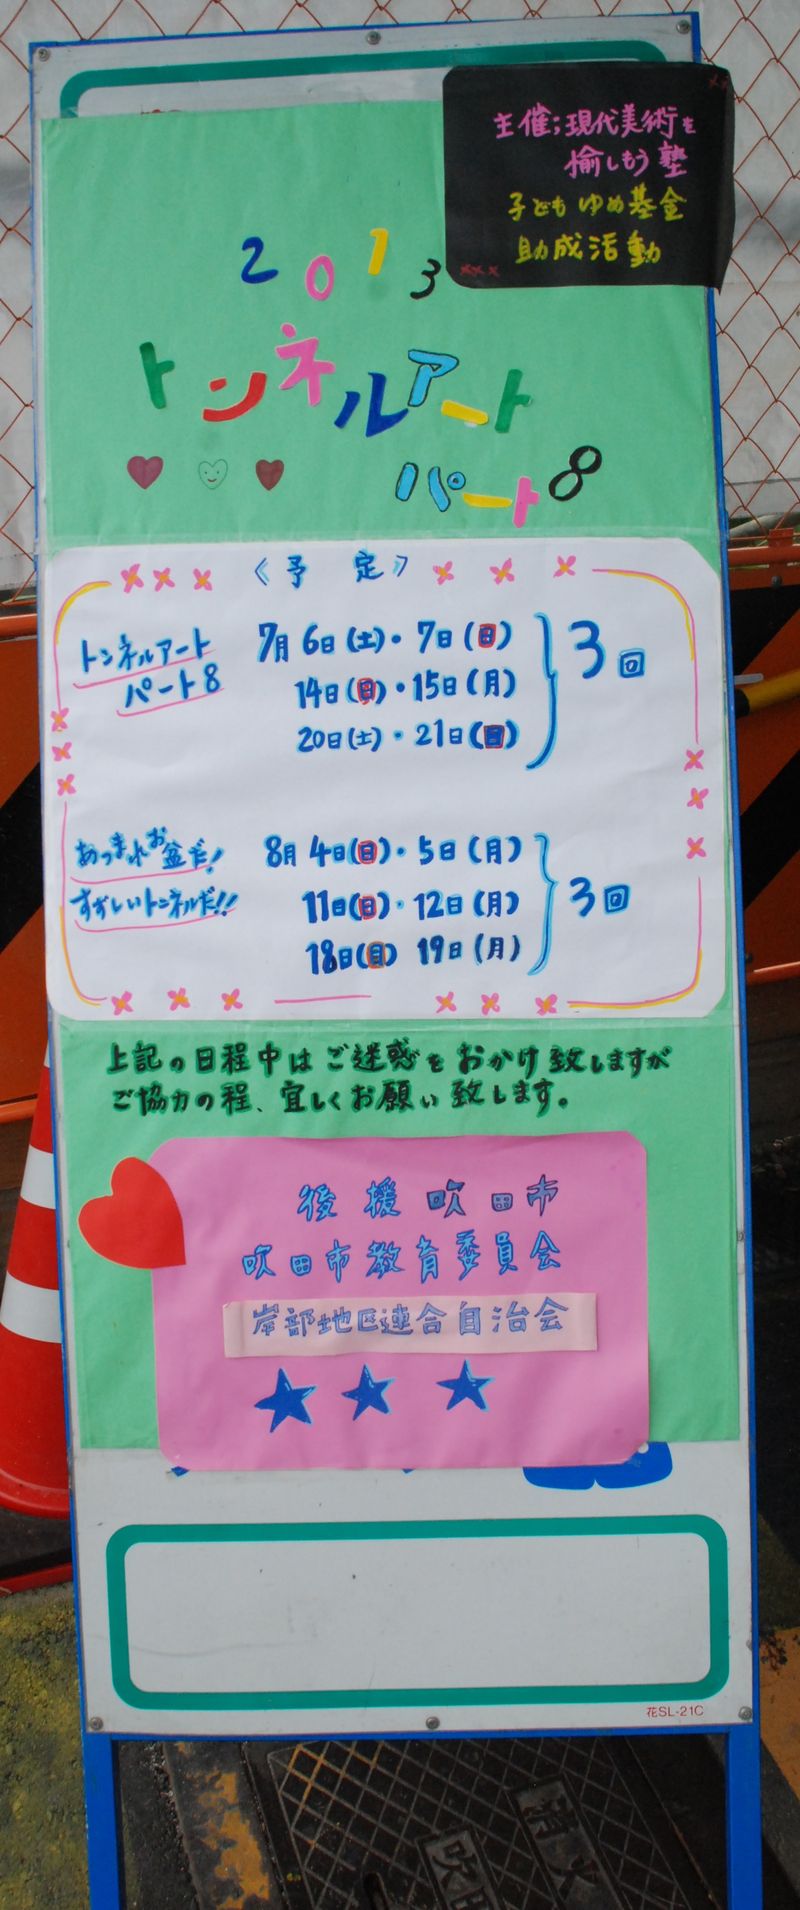 主催;現代美術を
愉しもう塾
子どもゆめ基金
助成活動
2013
トンネルアート
パート8
《予 定》
トンネルアート
パート8
7月6日(土)・7日(日)
14日(日)・15日(月)
20日(土)・21日(日)
3回
あつまれお盆だ!
すずしいトンネルだ!!
8月4日(日)・5日(月)
11日(日)・12日(月)
18日(日) 19日(月)
3回
上記の日程中はご迷惑をおかけ致しますが
ご協力の程、宜しくお願い致します。
後援 吹田市
吹田市教育委員会
岸部地区連合自治会
花SL-21C
消火
吹田